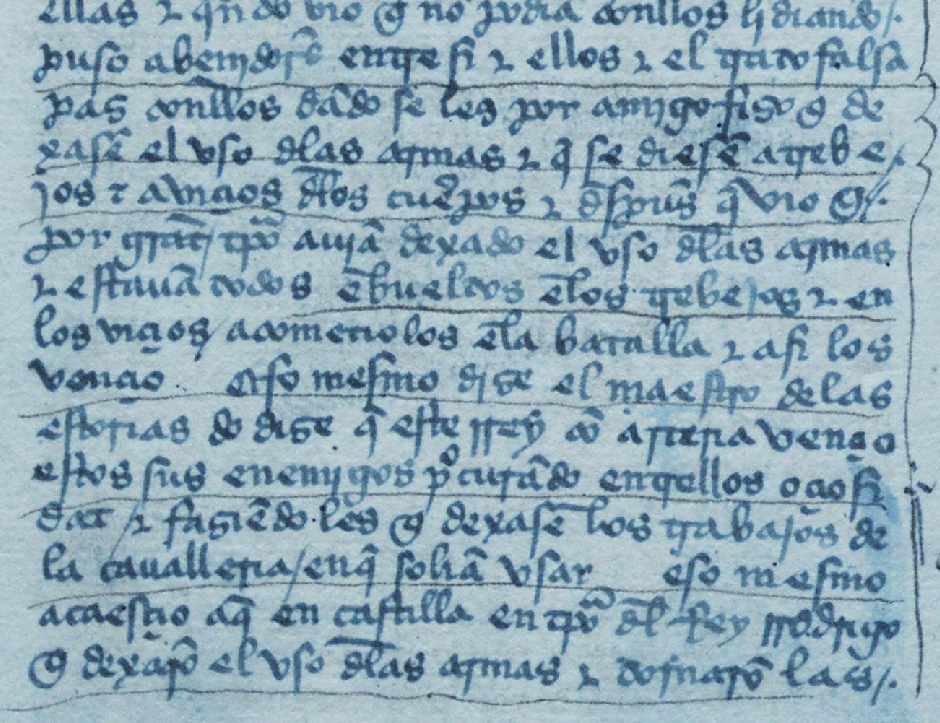 ellas ⁊ qñdo vio q̃ no podia conllos lidiando /.
puso abenidos entre si ⁊ ellos ⁊ el trato falsa
pas conllos dãdo se les por amigo fiso q̃ de
xasẽ el vso dlas armas ⁊ q̃ se diesẽ a trebe /
jos ⁊ a viçios dlos cuerpos ⁊ despues q̃ vio q̃ /.
por grãt tp̃o aujã dexado el vso dlas armas
⁊ estauã todos ẽbueltos ẽlos trebejos ⁊ en
los viçios / acometiolos ẽla batalla ⁊ asi los
vençio eso mesmo dise el maestro delas
estorias do dise q̃ este rrey cõ arteria vençio
estos sus enemigos p̃curãdo entrellos oçiosi
dat / ⁊ fasiẽdo les q̃ dexasẽ los trabajos de
la cauallería / enq̃ soliã vsar eso mesmo
acaesçio aq̃ en castilla en tp̃o dl Rey rrodrigo
q̃ dexarõ el vso dlas armas ⁊ tornarõ las /.